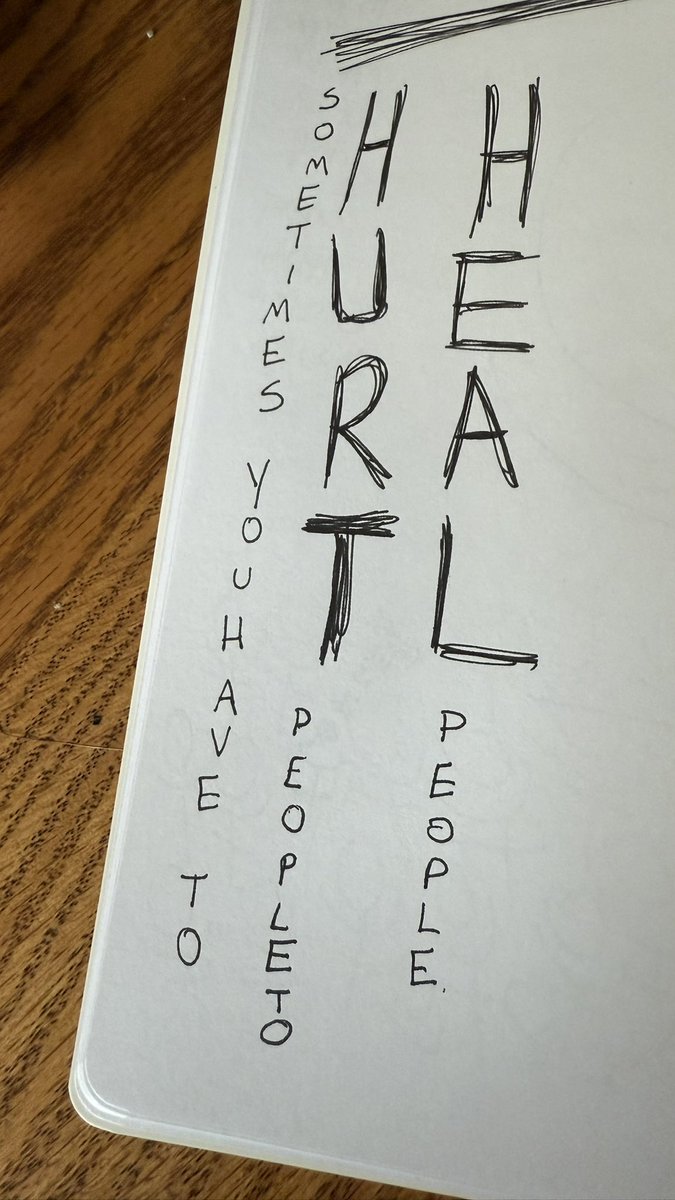 SOMETIMES YOU HAVE TO
HURT PEOPLE TO
HEAL PEOPLE.